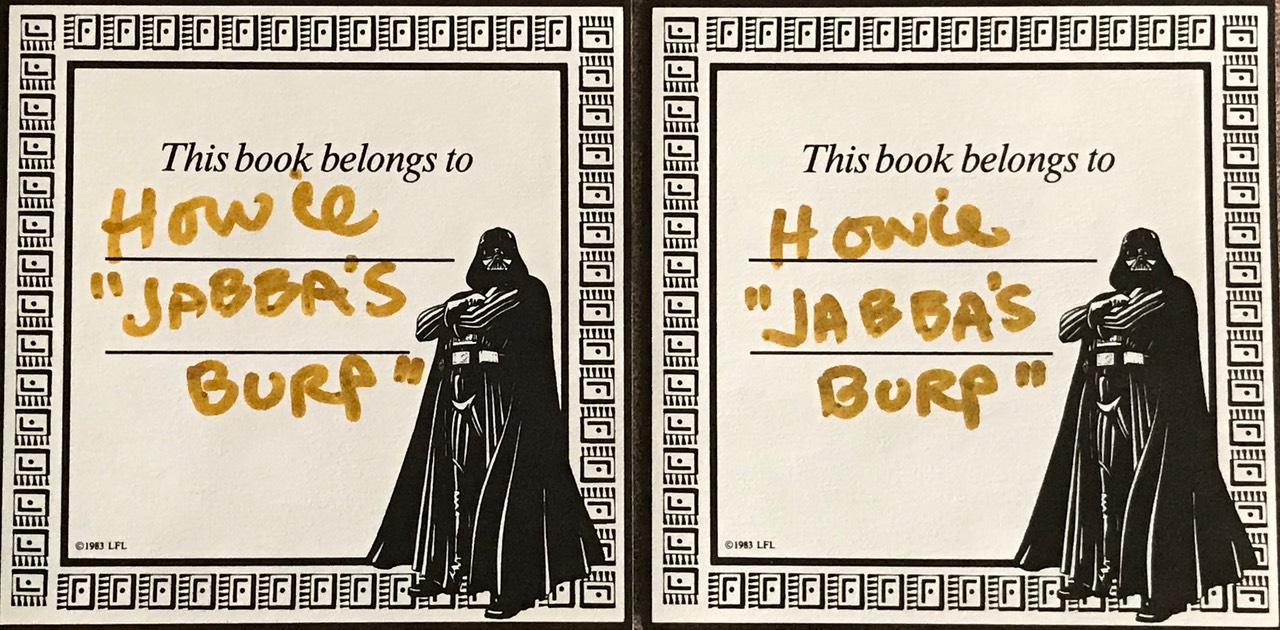 This book belongs to
Howie
"JABBA'S
BURP"
©1983 LFL
This book belongs to
Howie
"JABBA'S
BURP"
©1983 LFL